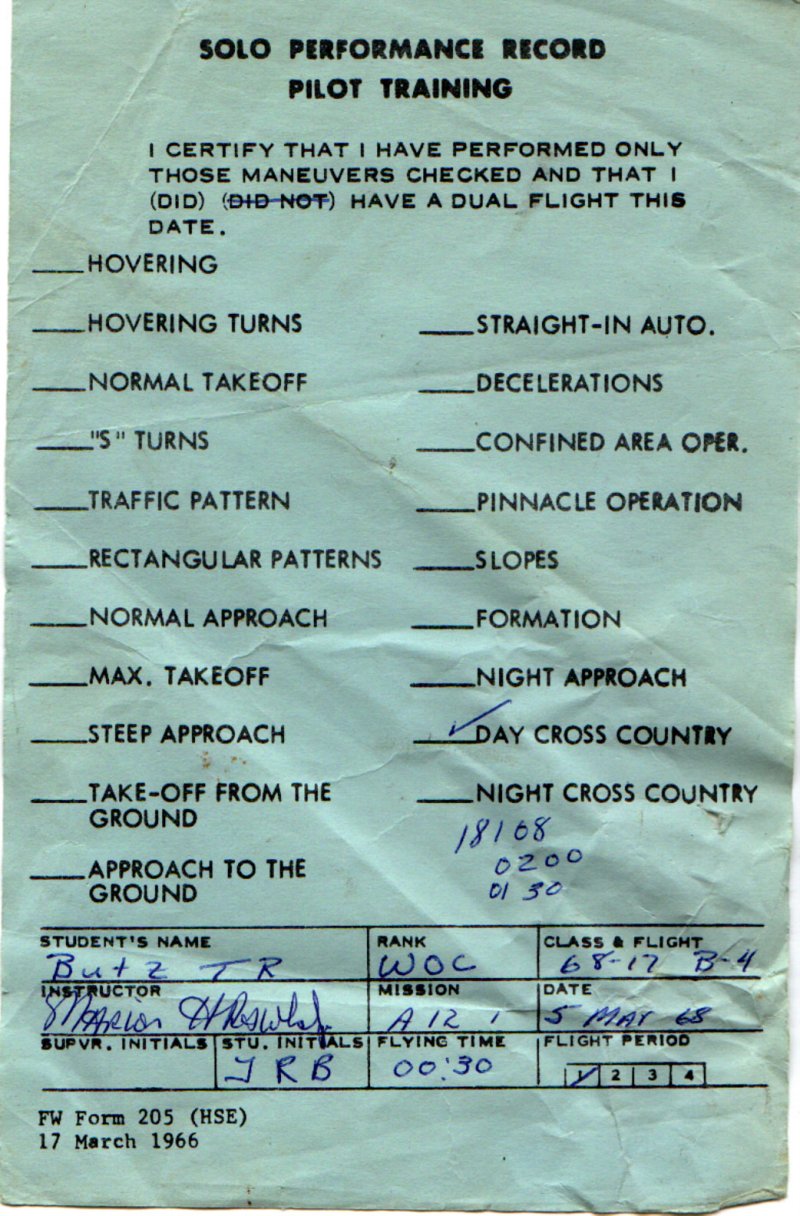 SOLO PERFORMANCE RECORD
PILOT TRAINING
I CERTIFY THAT I HAVE PERFORMED ONLY
THOSE MANEUVERS CHECKED AND THAT I
(DID) (DID NOT) HAVE A DUAL FLIGHT THIS
DATE.
HOVERING
HOVERING TURNS
NORMAL TAKEOFF
"S" TURNS
TRAFFIC PATTERN
RECTANGULAR PATTERNS
NORMAL APPROACH
MAX. TAKEOFF
STEEP APPROACH
TAKE-OFF FROM THE
GROUND
APPROACH TO THE
GROUND
STRAIGHT-IN AUTO.
DECELERATIONS
CONFINED AREA OPER.
PINNACLE OPERATION
SLOPES
FORMATION
NIGHT APPROACH
✓ DAY CROSS COUNTRY
NIGHT CROSS COUNTRY
18108
0200
0130
STUDENT'S NAME
Butz TR
RANK
WOC
CLASS & FLIGHT
68-17 B-4
INSTRUCTOR
Marion H
MISSION
A 12 1
DATE
5 MAY 68
SUPVR. INITIALS
STU. INITIALS
TRB
FLYING TIME
00:30
FLIGHT PERIOD
1 2 3 4
FW Form 205 (HSE)
17 March 1966